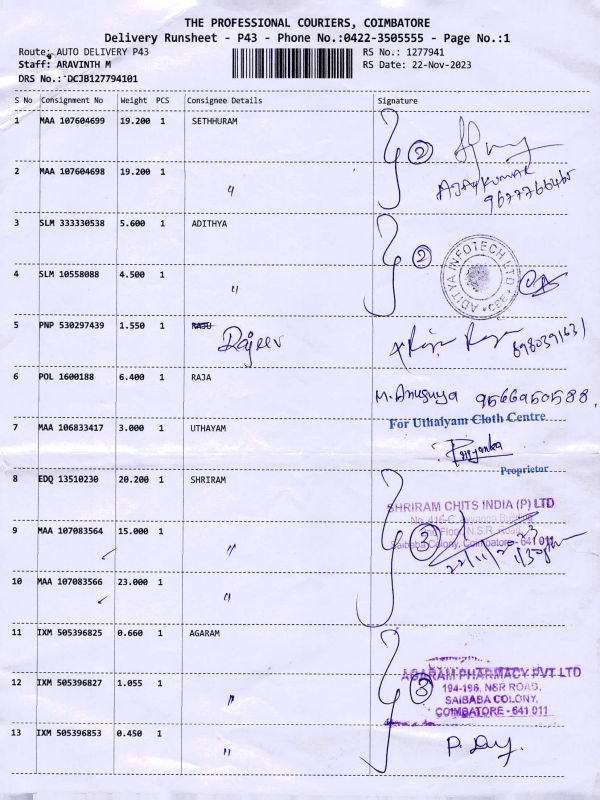 THE PROFESSIONAL COURIERS, COIMBATORE
Delivery Runsheet - P43 - Phone No.:0422-3505555 - Page No.:1
Route: AUTO DELIVERY P43
RS No.: 1277941
Staff: ARAVINTH M
RS Date: 22-Nov-2023
DRS No.: DCJB127794101
S No Consignment No Weight PCS Consignee Details Signature
1 MAA 107604699 19.200 1 SETHHURAM
2
2 MAA 107604698 19.200 1 "
AJAY KUMAR
3 SLM 333330538 5.600 1 ADITHYA
2
ADITYA INFOTECH LTD
4 SLM 10558088 4.500 1 "
5 PNP 530297439 1.550 1 RAJU
Rajeev
6 POL 1600188 6.400 1 RAJA
M. Anusuya 9566950588.
7 MAA 106833417 3.000 1 UTHAYAM
For Uthaiyam Cloth Centre
Priyanka
Proprietor
8 EDQ 13510230 20.200 1 SHRIRAM
SHRIRAM CHITS INDIA (P) LTD
9 MAA 107083564 15.000 1 "
3
N.S.R. Road,
Saibaba Colony, Coimbatore - 641 011
22/11/2023
10 MAA 107083566 23.000 1 "
11 IXM 505396825 0.660 1 AGARAM
AGARAM PHARMACY PVT LTD
12 IXM 505396827 1.055 1 "
3
194-196, NSR ROAD,
SAIBABA COLONY,
COIMBATORE - 641 011
13 IXM 505396853 0.450 1 "